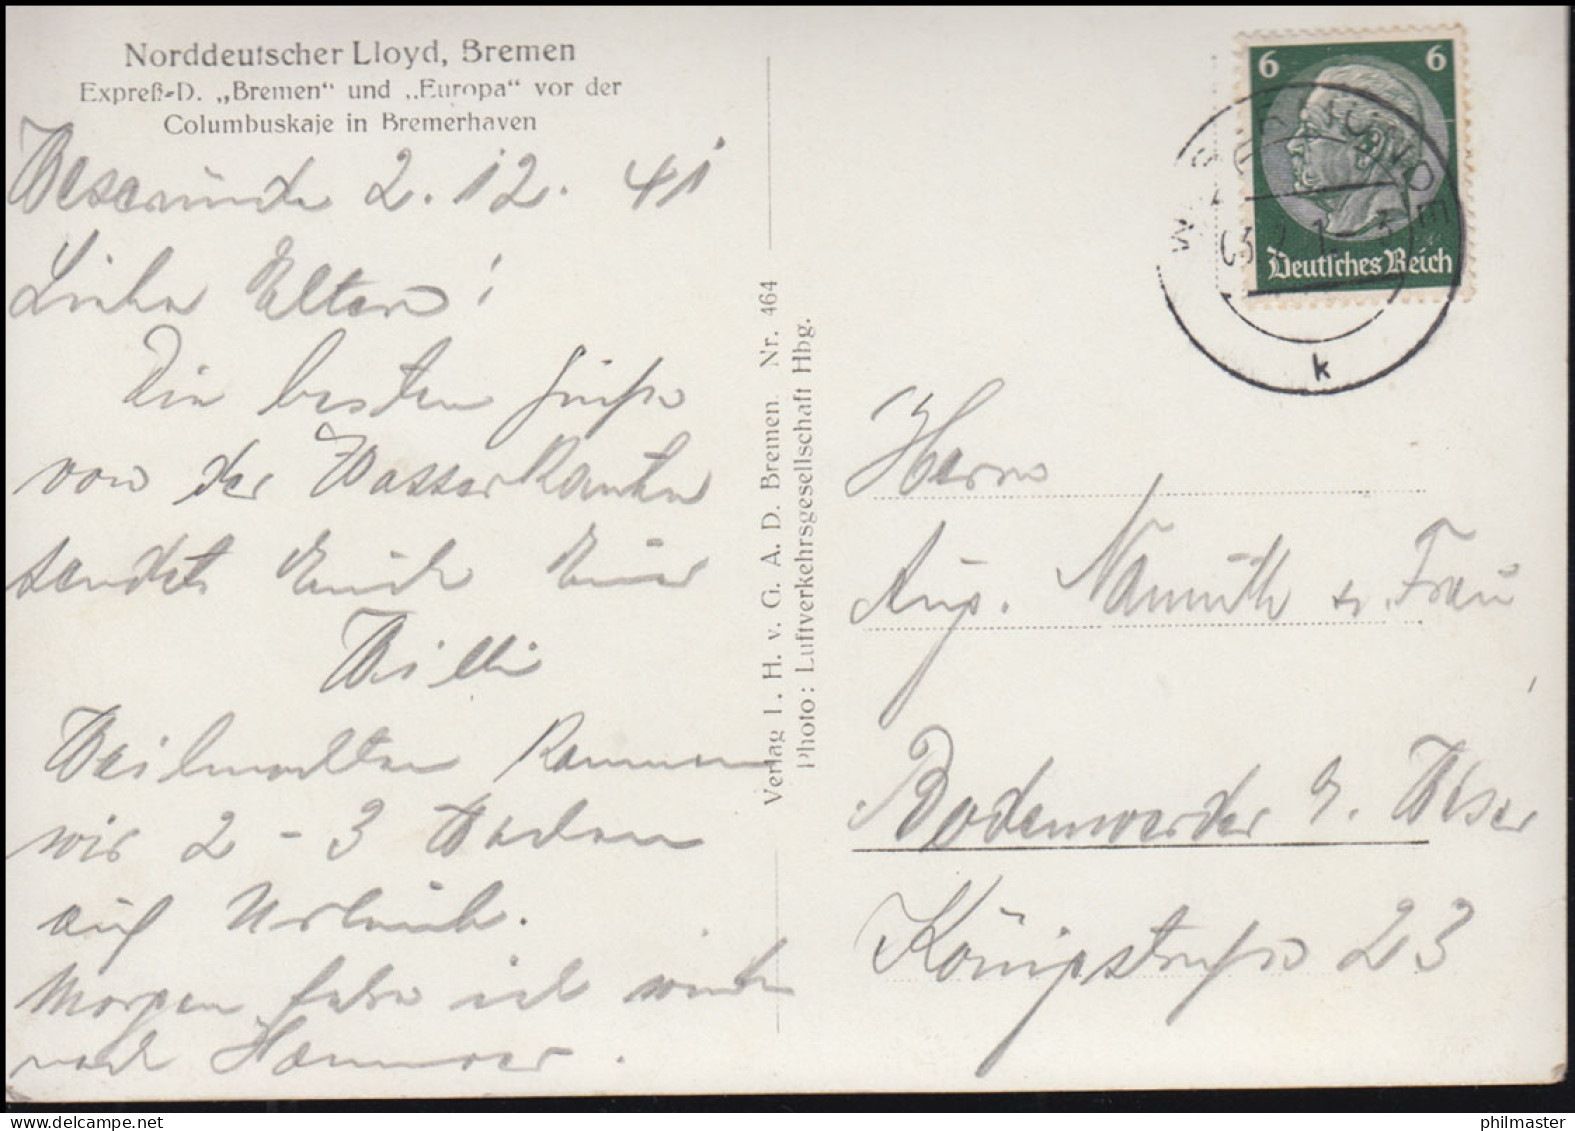 Norddeutscher Lloyd, Bremen
Expreß-D. „Bremen“ und „Europa“ vor der
Columbuskaje in Bremerhaven
Wesermünde 2.12.41
Liebe Eltern!
Die besten Grüße
von der Wasserkante
sendet Euch Euer
Willi
Weihnachten kommen
wir 2-3 Wochen
auf Urlaub.
Morgen fahre ich wieder
nach Hannover.
Verlag I. H. v. G. A. D. Bremen. Nr. 464
Photo: Luftverkehrsgesellschaft Hbg.
6 6
Deutsches Reich
WESERMÜNDE
k
Herrn
Aug. Namuth u. Frau
Bodenwerder a. Weser
Königstraße 23
philmaster